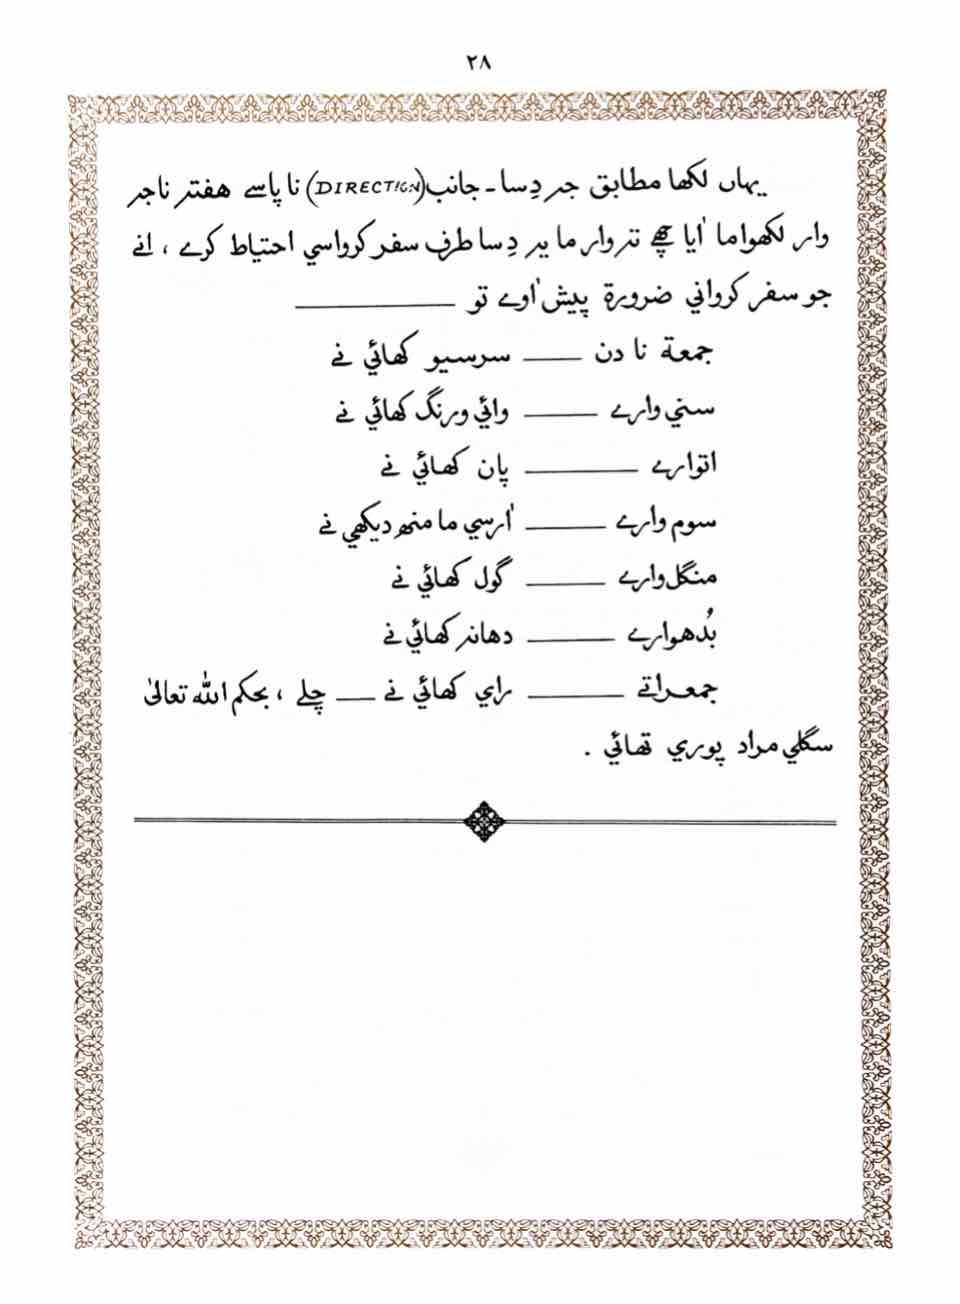 ٢٨
يهاں لكها مطابق جہ دِسا ـ جانب (DIRECTION) نا پاسے هفتہ نا جہ
وار لكهواما اٰيا چھے تہ وار ما يہ دِسا طرف سفر كرواسي احتياط كرے ، انے
جو سفر كرواني ضرورة پيش اٰوے تو ــــــــــ
جمعة نا دن ــــــ سرسيو كهائي نے
سني وارے ــــــ وائي ورنگ كهائي نے
اتوارے ــــــ پان كهائي نے
سوم وارے ــــــ اٰرسي ما منهہ ديكهي نے
منگل وارے ــــــ گول كهائي نے
بُدهوارے ــــــ دهانہ كهائي نے
جمعراتے ــــــ راي كهائي نے ــــ چلے ، بحكم الله تعالىٰ
سگلي مراد پوري تهائي .